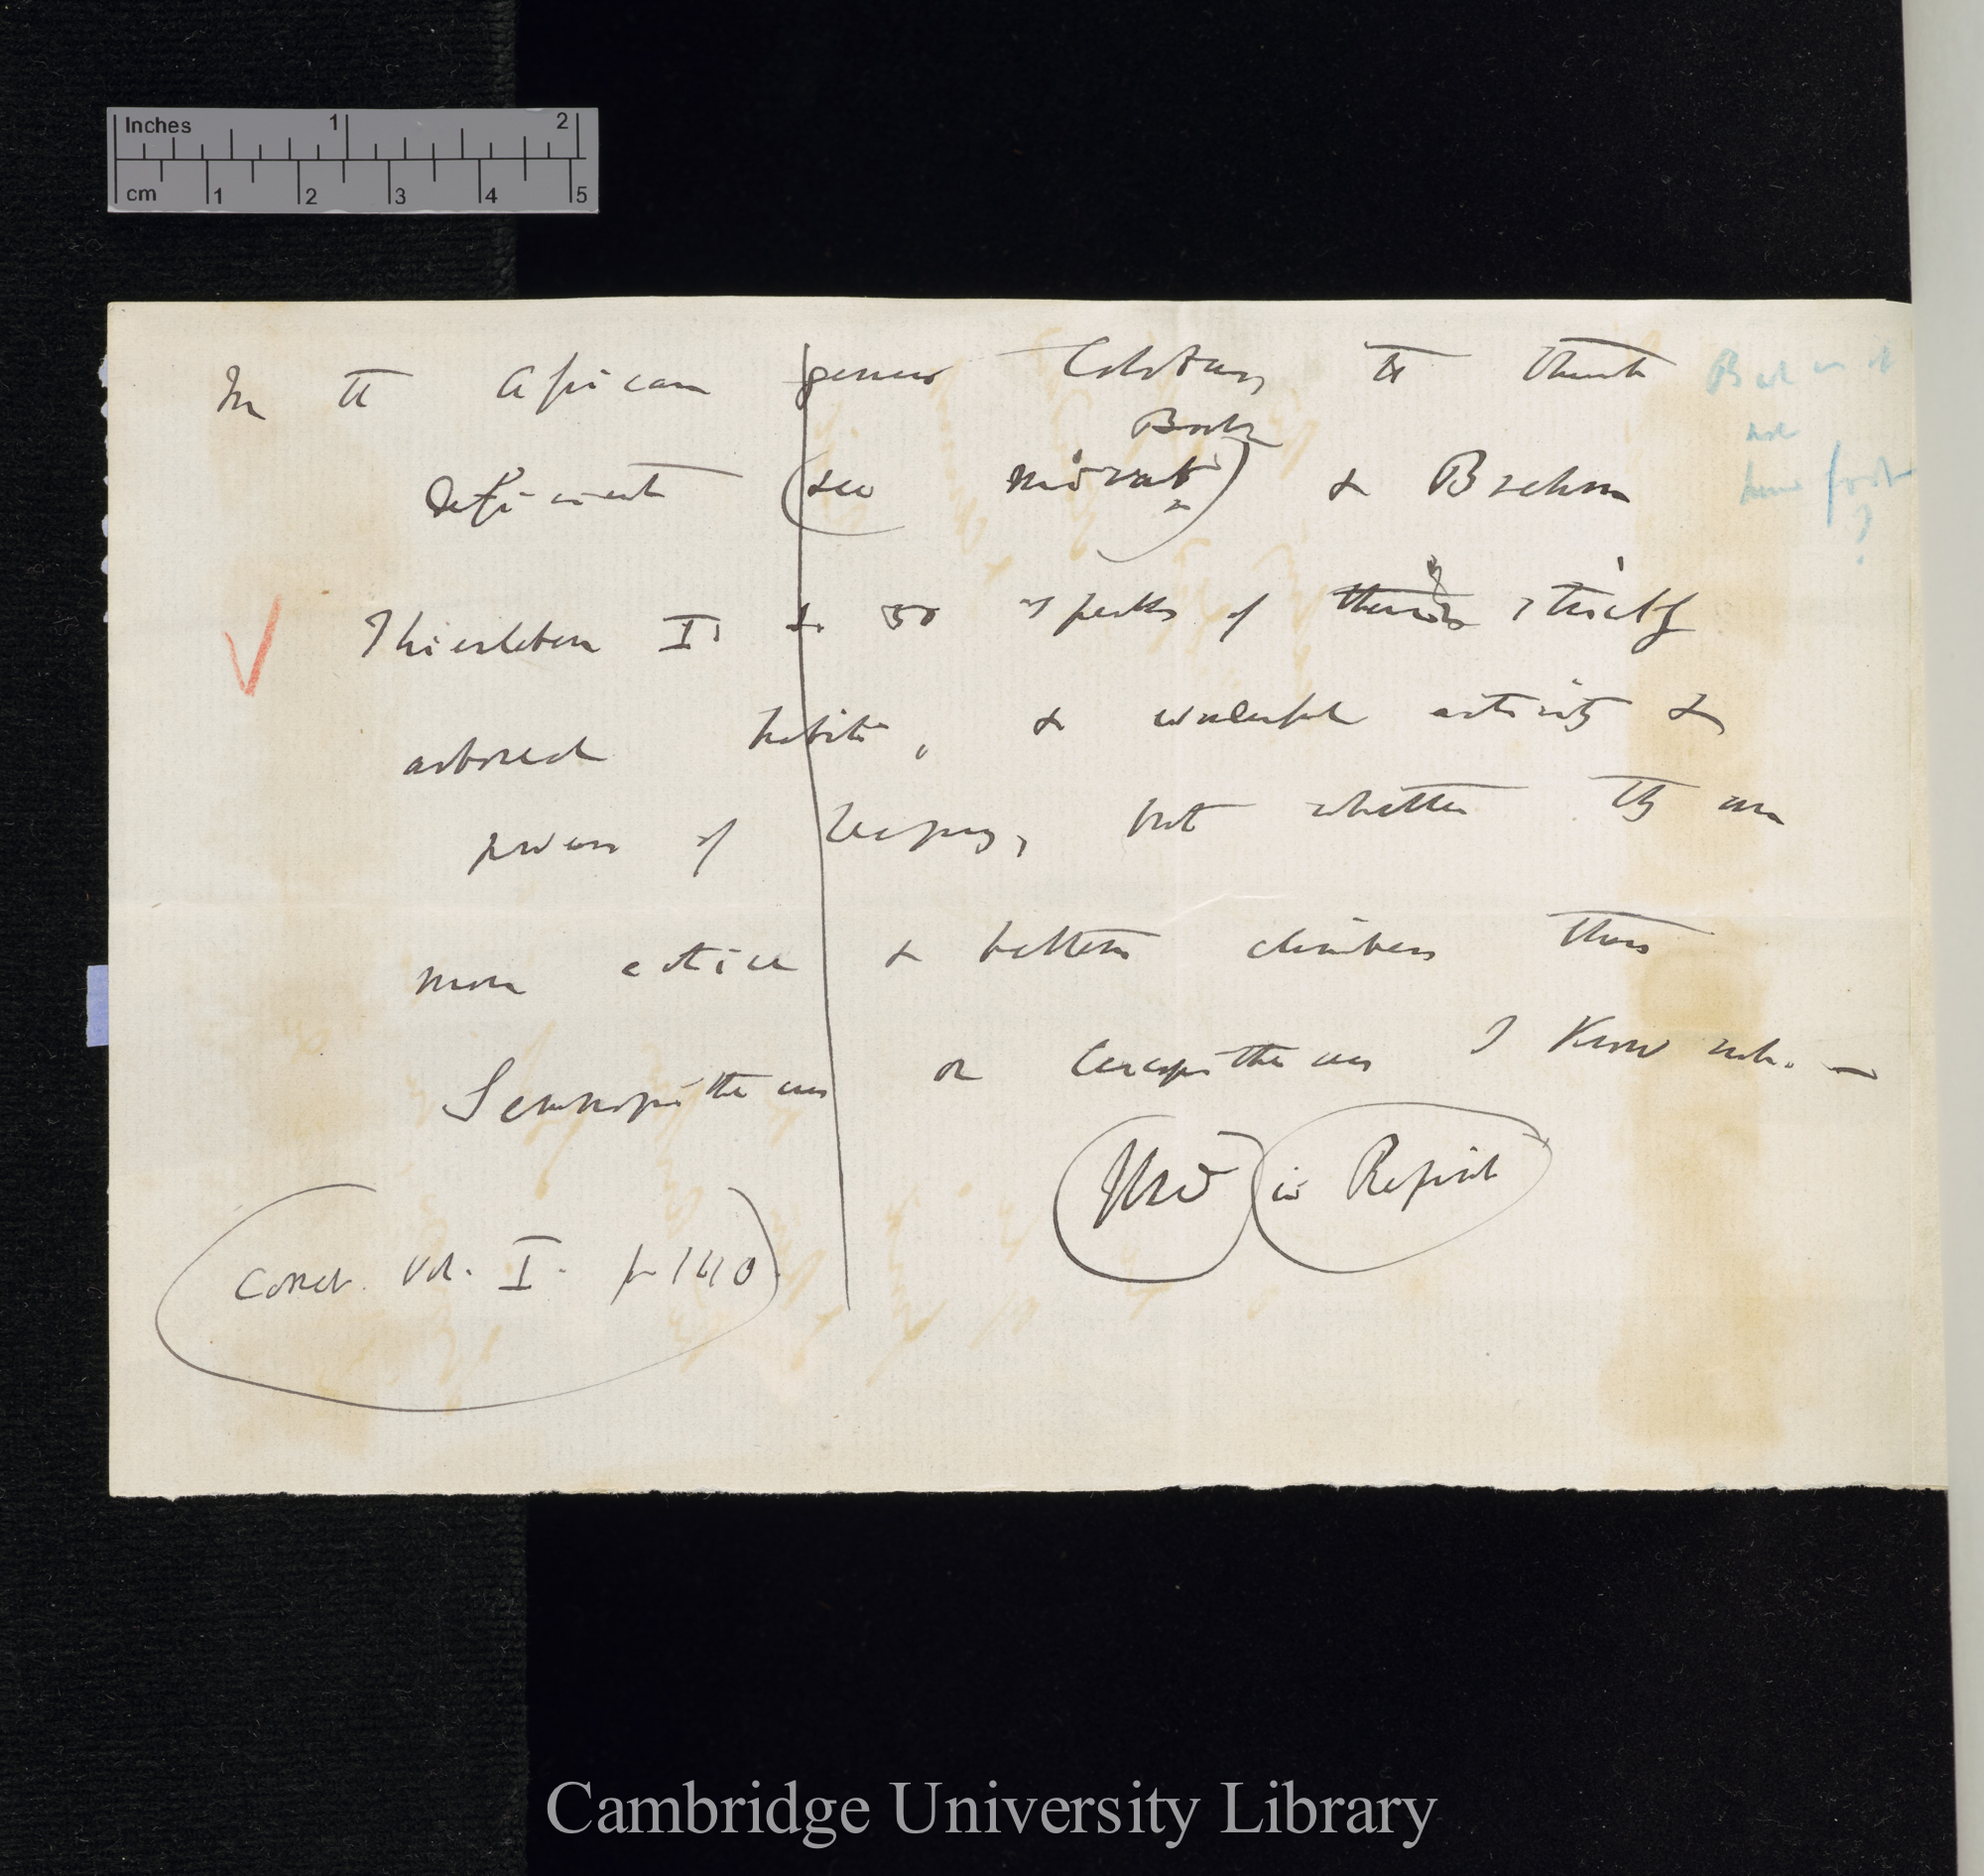 Inches 1 2
cm 1 2 3 4 5
In the African genus Colobus, the thumb
Book
deficient (see Mivart) & Brehm
Thierleben I. s. 50 speaks of their strictly
arboreal habits, & wonderful activity &
power of leaping, but whether they are
more active & better climbers than
Semnopithecus or Cercopithecus I know not. —
Used in Reprint
Correct. Vol. I. p 140
not
have foot
?
Cambridge University Library